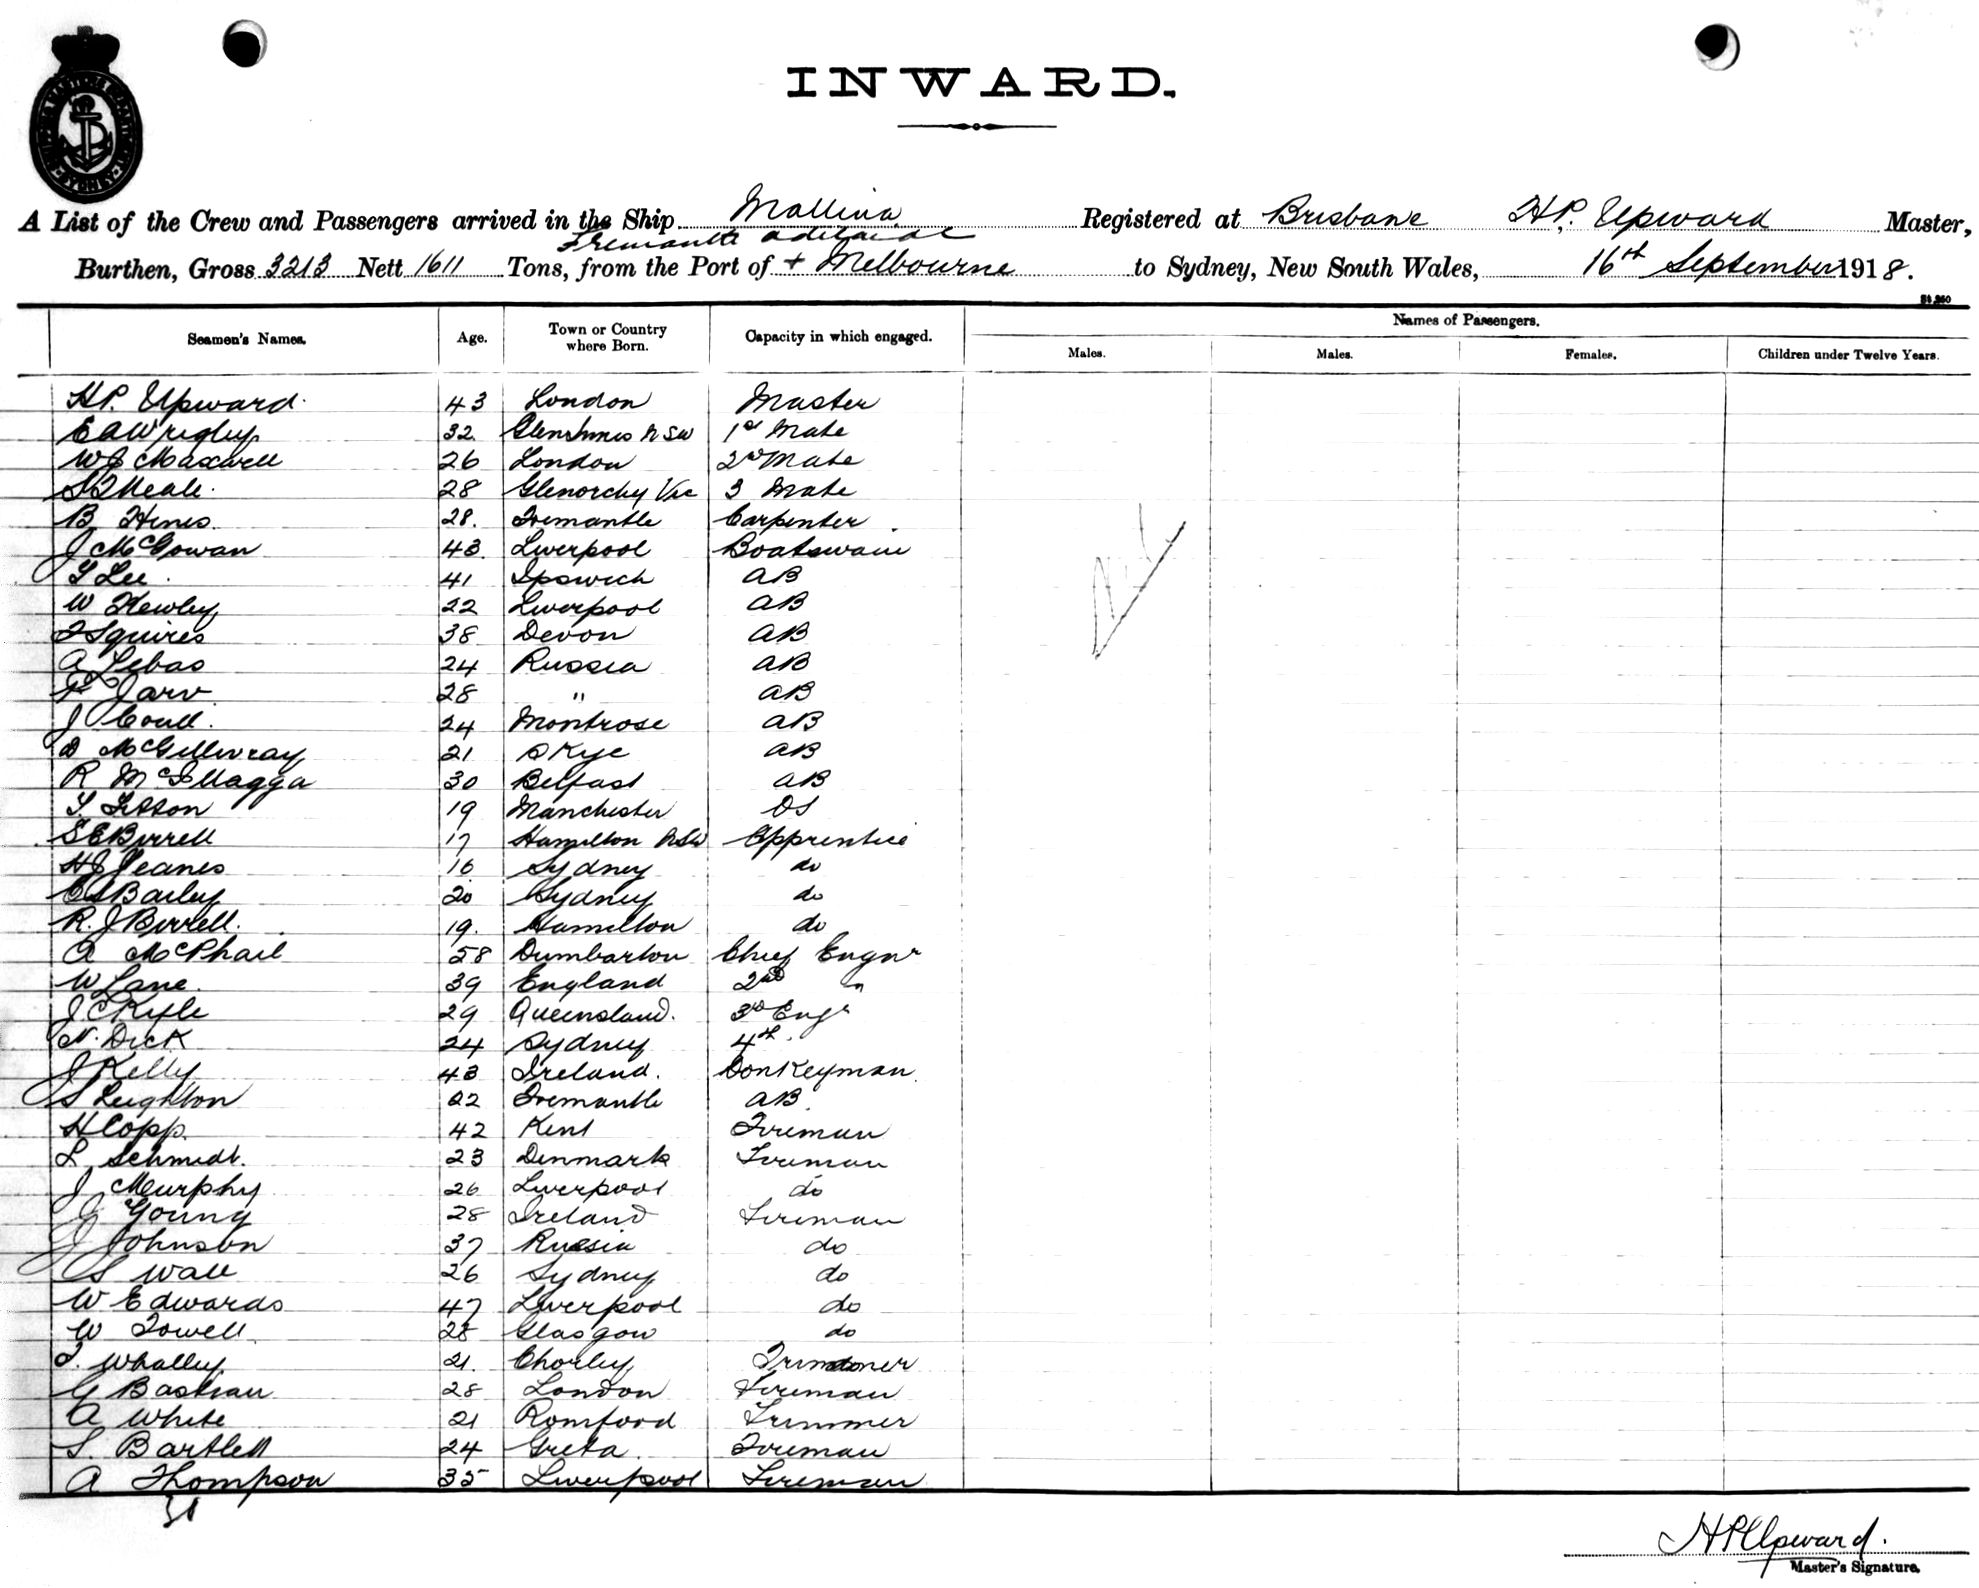 INWARD.
A List of the Crew and Passengers arrived in the Ship Mallina Registered at Brisbane H.P. Upward Master,
Fremantle Adelaide
Burthen, Gross 3213 Nett 1611 Tons, from the Port of + Melbourne to Sydney, New South Wales, 16th September 1918.
Seamen's Names. Age. Town or Country where Born. Capacity in which engaged. Names of Passengers.
Males. Males. Females. Children under Twelve Years.
HP. Upward. 43 London Master
EA Wrigley 32. Glen Innes NSW 1st Mate
W Maxwell 26 London 2nd Mate
Neale. 28 Glenorchy Vic 3 Mate
B Hines. 28. Fremantle Carpenter
J McGowan 43. Liverpool Boatswain
Lee. 41 Ipswich AB
W Kewley 22 Liverpool AB
Squires 38 Devon AB
A Lebas 24 Russia AB
Jarv 28 " AB
J Coull. 24 Montrose AB
D McGillivray 21 Skye AB
R 30 Belfast AB
19 Manchester OS
SE Birrell 17 Hamilton NSW Apprentice
HJ Jeanes 16 Sydney do
Bailey 20 Sydney do
R. J Birrell. 19. Hamilton do
A McPhail 58 Dumbarton Chief Engnr
W Lane. 39 England 2nd "
J C Kyle 29 Queensland. 3rd Engr
N. Dick 24 Sydney 4th.
J Kelly 43 Ireland. Donkeyman
S Leighton 22 Fremantle AB.
H Copp. 42 Kent Fireman
L Schmidt. 23 Denmark Fireman
J Murphy 26 Liverpool do
J Young 28 Ireland Fireman
J Johnson 37 Russia do
S Wall 26 Sydney do
W Edwards 47 Liverpool do
W Towell 28 Glasgow do
T. Whalley 21. Chorley Trimmer
G Bastian 28 London Fireman
A White 21 Romford Trimmer
S. Bartlett 24 Greta Fireman
A Thompson 35 Liverpool Fireman
HP Upward.
Master's Signature.